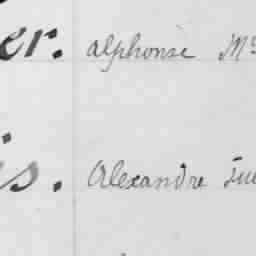 er. alphonse
is. Alexandre